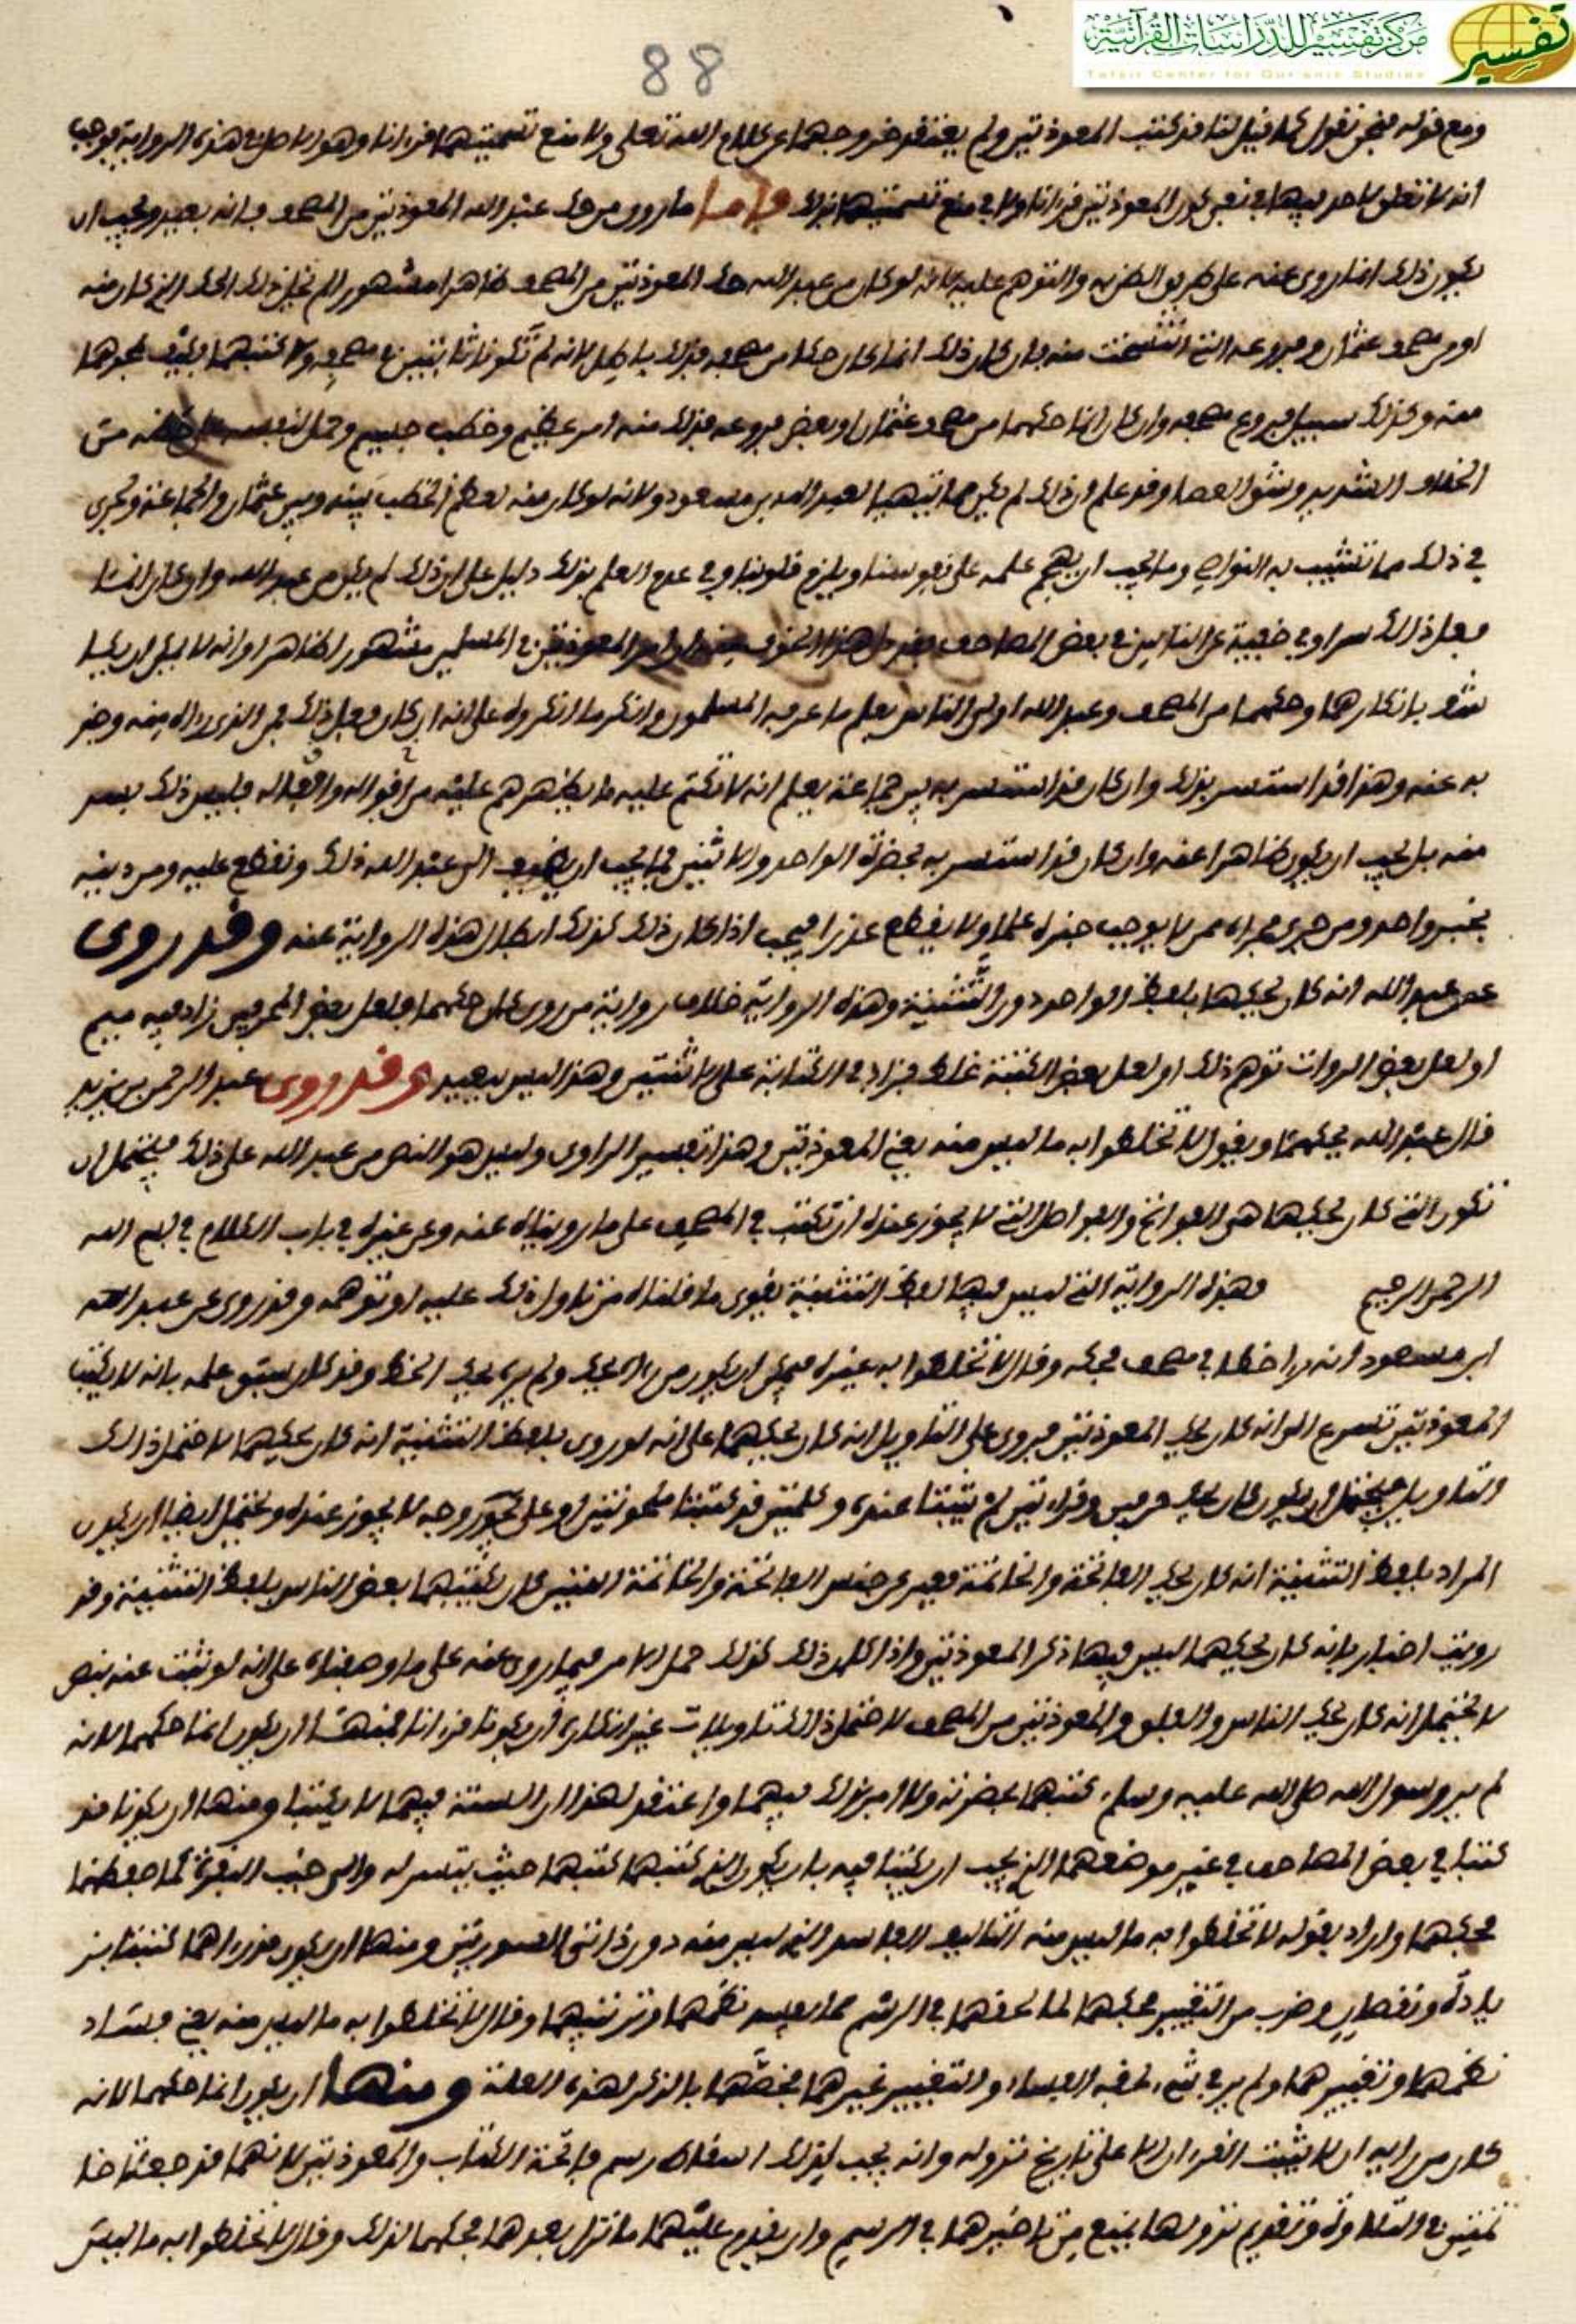 مركز تفسير للدراسات القرآنية
Tafsir Center for Qur'anic Studies
تفسير
88
ومع قوله فنحن نقول كما قيل لنا قد كتب المعوذتين ولم يعتقد خروجهما عن كلام الله تعلى ولا منع تسميتهما قرءانا وهو الاصل في هذه الرواية فوجب
انه لا تعلق لاحد بها في نفي كون المعوذتين قرءانا ولا في منع تسميتهما بذلك فاما ما روى من حك عبد الله المعوذتين من المصحف فانه بعيد ويجب ان
يكون ذلك انما روى عنه على طريق الظن به والتوهم عليه لانه لو كان من عبد الله حك المعوذتين من المصحف ظاهرا مشهورا لم يخل ذلك الحك الذي كان منه
او من مصحف عثمان وفروعه التي انتسخت منه فان كان ذلك انما كان حكا من مصحفه فذلك باطل لانه لم تكونا ثابتتين في مصحفه ولا كتبهما فكيف يمحوهما
منه وكذلك سبيل فروع مصحفه وان كان انما حكهما من مصحف عثمان او بعض فروعه فذلك منه امر عظيم وخطب جسيم وحمل لنفسه
الخلاف الشديد وشق العصا وقد علم ان ذلك لم يكن لعبد الله بن مسعود ولانه لو كان منه لعظم الخطب بينه وبين عثمان والجماعة ولجرى
في ذلك مما تشيب به النواصي وما يجب ان يهجم علمه على نفوسنا ويلزم قلوبنا وفي عدم العلم بذلك دليل على ان ذلك لم يكن من عبد الله وان كان انما
فعل ذلك سرا وفي خفية عن الناس في بعض المصاحف المعوذتين في المسلمين مشهورا ظاهرا وانه لا يمكن ان
بانكارهما وحكهما من المصحف وعبد الله اولى الناس بعلم ما عرفه المسلمون وانكر ما انكروه على انه ان كان فعل ذلك فمن الذي رءاه منه وخبر
به عنه وهذا قد استسر بذلك وان كان قد استسر به بين جماعة يعلم انه لا تكتم عليه ما يظهرهم عليه من اقواله وافعاله فليس ذلك بسر
منه بل يجب ان يكون ظاهرا عنه وان كان قد استسر به بحضرة الواحد والاثنين فما يجب ان يضيف الى عبد الله ذلك ونقطع عليه ومن دينه
بخبر واحد ومن جرى مجراه ممن لا يوجب خبره علما ولا يقطع عذرا فيجب اذا كان ذلك كذلك ابطال هذه الرواية عنه وقد روى
عن عبد الله انه كان يحكها بلفظ الواحد دون التثنية وهذه الرواية خلاف رواية من روى كان حكهما فلعل بعض المحرفين زاد فيه ميم
او لعل بعض الروات توهم ذلك او لعل بعض الكتبة غلط فزاد في الكتابة على الاثنين وهذا ليس ببعيد وقد روى عبد الرحمن بن يزيد
قال عبد الله يحكهما ويقول لا تخلطوا به ما ليس منه يعني المعوذتين وهذا تفسير الراوى وليس هو النص من عبد الله على ذلك فيحتمل ان
تكون التي كان يحكها هي الفواتح والفواصل التي لا يجوز عنده ان تكتب في المصحف على ما رويناه عنه وعن غيره في باب الكلام في بسم الله
الرحمن الرحيم وهذه الرواية التي ليس فيها لفظ التثنية يقوى ما قلناه من تاول ذلك عليه او توهمه وقد روى عن عبد الله
ابن مسعود انه راى خطا في مصحف فحكه وقال لا تخلطوا به غيره فيمكن ان يكون من رءاه يحك ولم ير يحك الخط وقد كان سبق علمه بانه لا يكتب
المعوذتين تسرع الى انه كان يحك المعوذتين فيروى على التاويل انه كان يحكهما على انه لو روى بلفظ التثنية انه كان يحكهما لاحتمل ذلك
التاويل فيحتمل ان يكون كان يحك حرفين وقراءتين لم يثبتا عنده وكلمتين قد كتبتا ملحونتين او على وجه لا يجوز عنده ويحتمل ايضا ان يكون
المراد بلفظ التثنية انه كان يحك الفاتحة والخاتمة فعبر عن جنس الفاتحة والخاتمة التي كان يكتبهما بعض الناس بلفظ التثنية وقد
رويت اخبار بانه كان يحكهما ليس فيها ذكر المعوذتين واذا كان ذلك كذلك حمل الامر فيما روى عنه على ما وصفناه على انه لو ثبت عنه بنص
لا يحتمل انه كان يحك الناس والفلق والمعوذتين من المصحف لاحتمل ذلك تاويلات غير انكاره ان يكونا قرءانا فمنها ان يكون انما حكهما لانه
لم ير رسول الله صلى الله عليه وسلم كتبهما بحضرته ولا امر بذلك فيهما واعتقد لهذا ان السنة فيهما لا يكتبا ومنها ان يكونا قد
كتبا في بعض المصاحف في غير موضعهما الذي يجب ان يكتبا فيه بان يكون الذي كتبهما كتبهما حيث تيسر له والى جنب البقرة كما حفظهما
فحكهما واراد بقوله لا تخلطوا به ما ليس منه التاليف الفاسد الذي ليس منه دون ذاتى السورتين ومنها ان يكون قد رءاهما كتبتا
بزيادة ونقصان وضرب من التغيير فحكهما لما لحقهما في الرسم مما يفسد نظمهما وترتيبهما وقال لا تخلطوا به ما ليس منه يعني فساد
نظمهما وتغييرهما ولم ير في شيء لحقه الفساد والتغيير غيرهما فخصهما بالذكر لهذه العلة ومنها ان يكون انما حكهما لانه
كان من رايه ان لا يثبت القرءان الا على تاريخ نزوله وانه يجب لذلك اسقاط رسم فاتحة الكتاب والمعوذتين لانهما قد جعلتا
في التلاوة وتقديم نزولها يمنع من تاخيرهما في الرسم وان يقدم عليهما ما نزل بعدهما فحكهما لذلك وقال لا تخلطوا به ما ليس